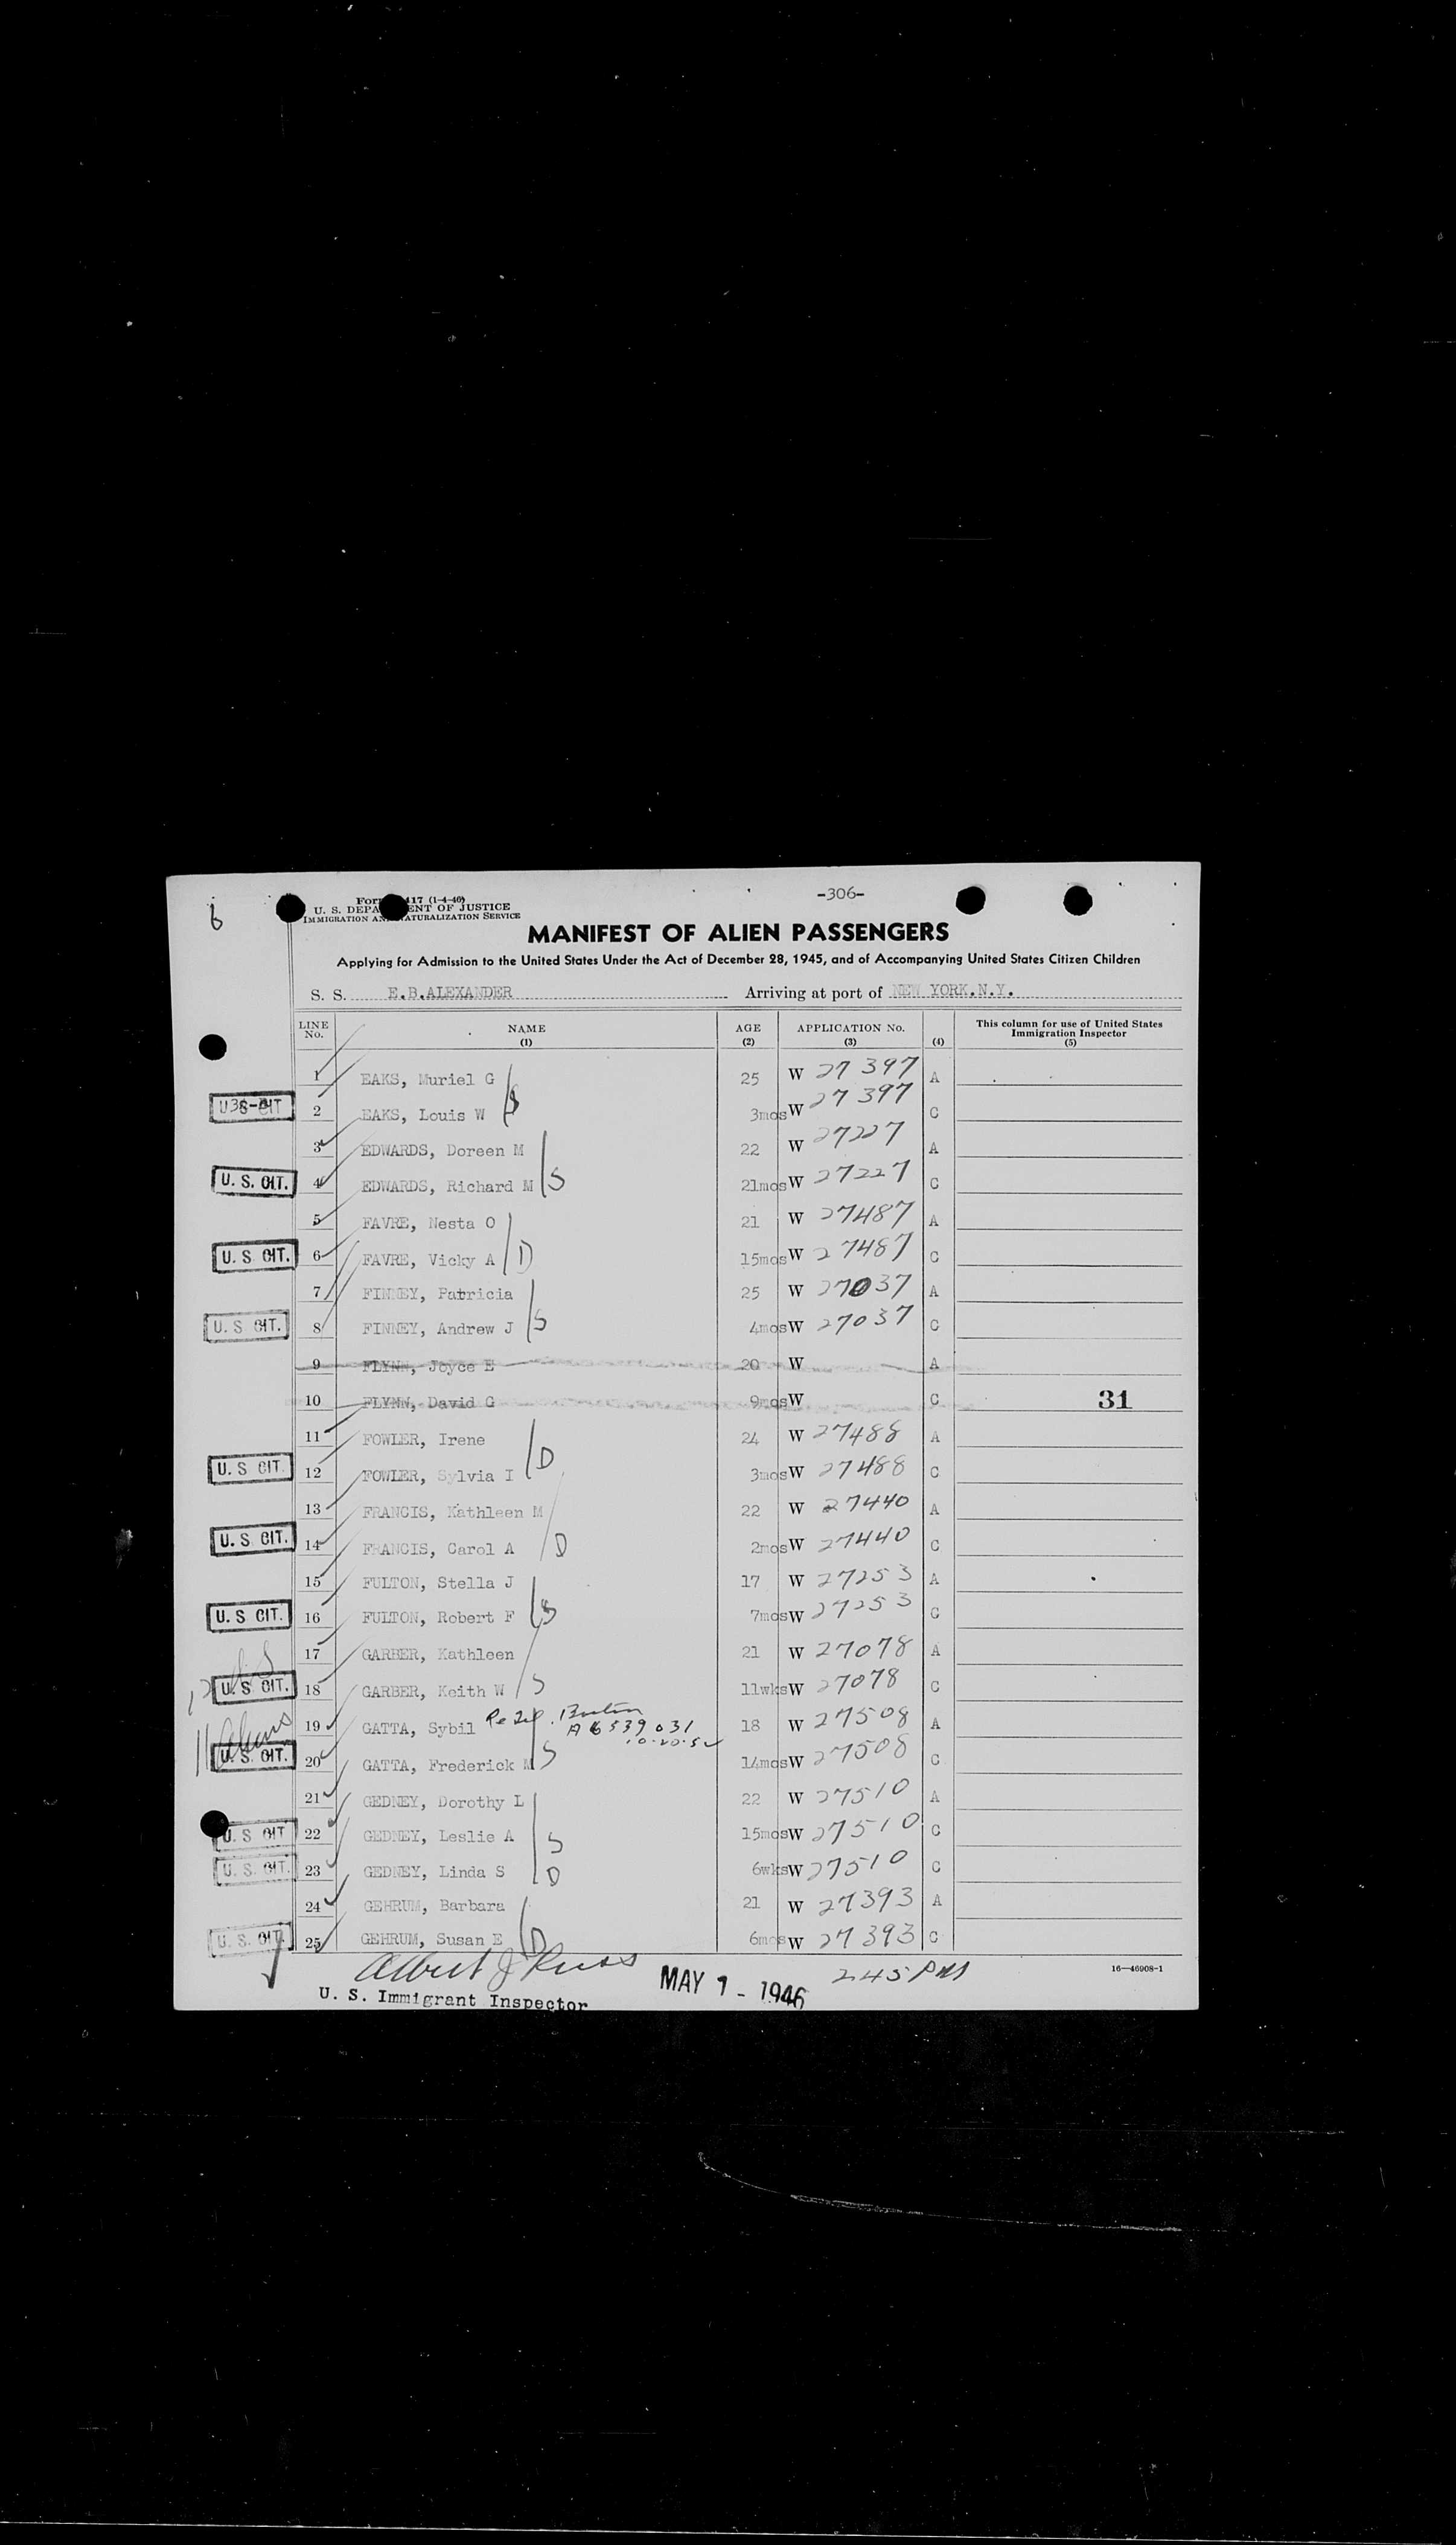 6
-306-
Form 117 (1-4-46)
U. S. DEPARTMENT OF JUSTICE
IMMIGRATION AND NATURALIZATION SERVICE
MANIFEST OF ALIEN PASSENGERS
Applying for Admission to the United States Under the Act of December 28, 1945, and of Accompanying United States Citizen Children
S. S. E.B.ALEXANDER Arriving at port of NEW YORK.N.Y.
LINE No. NAME (1) AGE (2) APPLICATION No. (3) (4) This column for use of United States Immigration Inspector (5)
1 EAKS, Muriel G 25 W 27397 A
U.S. CIT 2 EAKS, Louis W S 3mos W 27397 C
3 EDWARDS, Doreen M 22 W 27227 A
U. S. CIT. 4 EDWARDS, Richard M S 21mos W 27227 C
5 FAVRE, Nesta O 21 W 27487 A
U. S. CIT. 6 FAVRE, Vicky A D 15mos W 27487 C
7 FINNEY, Patricia 25 W 27037 A
U. S. CIT. 8 FINNEY, Andrew J S 4mos W 27037 C
9 FLYNN, Joyce E 20 W A
10 FLYNN, David G 9mos W C 31
11 FOWLER, Irene 24 W 27488 A
U. S. CIT. 12 FOWLER, Sylvia I D 3mos W 27488 C
13 FRANCIS, Kathleen M 22 W 27440 A
U. S. CIT. 14 FRANCIS, Carol A D 2mos W 27440 C
15 FULTON, Stella J 17 W 27253 A
U. S. CIT. 16 FULTON, Robert F S 7mos W 27253 C
17 GARBER, Kathleen 21 W 27078 A
U. S. CIT. 18 GARBER, Keith W S 11wks W 27078 C
11 Aliens 19 GATTA, Sybil A6539031 18 W 27508 A
U. S. CIT. 20 GATTA, Frederick M S 14mos W 27508 C
21 GEDNEY, Dorothy L 22 W 27510 A
U. S. CIT 22 GEDNEY, Leslie A S 15mos W 27510 C
U. S. CIT. 23 GEDNEY, Linda S D 6wks W 27510 C
24 GEHRUM, Barbara 21 W 27393 A
U. S. CIT. 25 GEHRUM, Susan E D 6mos W 27393 C
Albert J
U. S. Immigrant Inspector
MAY 1 - 1946
2:45 PM
16—46908-1